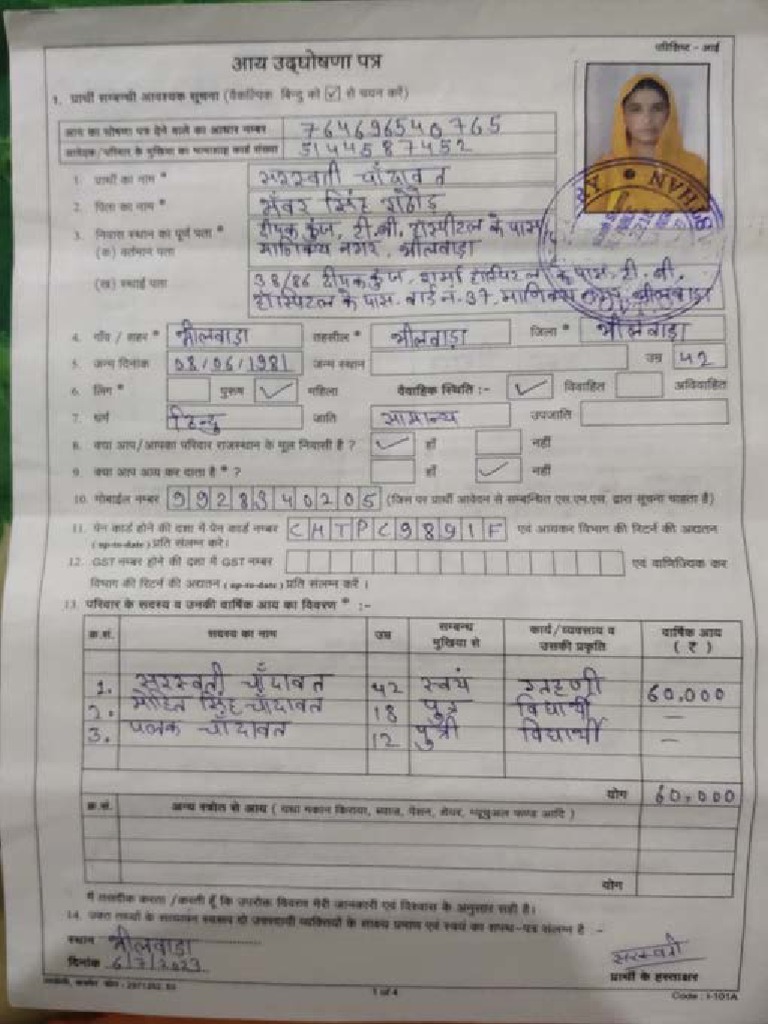 परिशिष्ट - आई
आय उद्घोषणा पत्र
1. प्रार्थी सम्बन्धी आवश्यक सूचना (वैकल्पिक बिन्दु को ✓ से चयन करें)
आय का घोषणा पत्र देने वाले का आधार नम्बर 764696540765
आवेदक/परिवार के मुखिया का भामाशाह कार्ड संख्या 5144587452
1. प्रार्थी का नाम * सरस्वती चाँदावत
2. पिता का नाम * भंवर सिंह राठौड़
3. निवास स्थान का पूर्ण पता * दीपक कुंज, टी.बी. होस्पीटल के पास,
(क) वर्तमान पता माणिक्य नगर, भीलवाड़ा
(ख) स्थाई पता 38/86 दीपक कुंज, शर्मा होस्पिटल के पास, टी. बी.
होस्पिटल के पास. वार्ड न. 37, माणिक्य नगर, भीलवाड़ा
4. गाँव / शहर * भीलवाड़ा तहसील * भीलवाड़ा जिला * भीलवाड़ा
5. जन्म दिनांक 08/06/1981 जन्म स्थान उम्र 42
6. लिंग * पुरूष ✓ महिला वैवाहिक स्थिति :- ✓ विवाहित अविवाहित
7. धर्म हिन्दु जाति सामान्य उपजाति
8. क्या आप/आपका परिवार राजस्थान के मूल निवासी है ? ✓ हाँ नहीं
9. क्या आप आय कर दाता है * ? हाँ ✓ नहीं
10. मोबाईल नम्बर 9928340205 (जिस पर प्रार्थी आवेदन से सम्बन्धित एस.एम.एस. द्वारा सूचना चाहता है)
11. पेन कार्ड होने की दशा में पेन कार्ड नम्बर CHTPC9891F एवं आयकर विभाग की रिटर्न की अद्यतन
(up-to-date) प्रति संलग्न करें।
12. GST नम्बर होने की दशा में GST नम्बर एवं वाणिज्यिक कर
विभाग की रिटर्न की अद्यतन (up-to-date) प्रति संलग्न करें ।
13. परिवार के सदस्य व उनकी वार्षिक आय का विवरण * :-
क्र.सं. सदस्य का नाम उम्र सम्बन्ध मुखिया से कार्य/व्यवसाय व उसकी प्रकृति वार्षिक आय ( ₹ )
1. सरस्वती चाँदावत 42 स्वयं गृहणी 60,000
2. मोहित सिंह चाँदावत 18 पुत्र विद्यार्थी —
3. पलक चाँदावत 12 पुत्री विद्यार्थी —
योग 60,000
क्र.सं. अन्य स्त्रोत से आय ( यथा मकान किराया, ब्याज, पेंशन, शेयर, म्यूचुअल फण्ड आदि )
योग
मैं तसदीक करता /करती हूँ कि उपरोक्त विवरण मेरी जानकारी एवं विश्वास के अनुसार सही है।
14. उक्त तथ्यों के सत्यापन स्वरूप दो उत्तरदायी व्यक्तियों के साक्ष्य प्रमाण एवं स्वयं का शपथ-पत्र संलग्न है :-
स्थान भीलवाड़ा
दिनांक 6/7/2023
सरस्वती
प्रार्थी के हस्ताक्षर
1 of 4
Code : I-101A